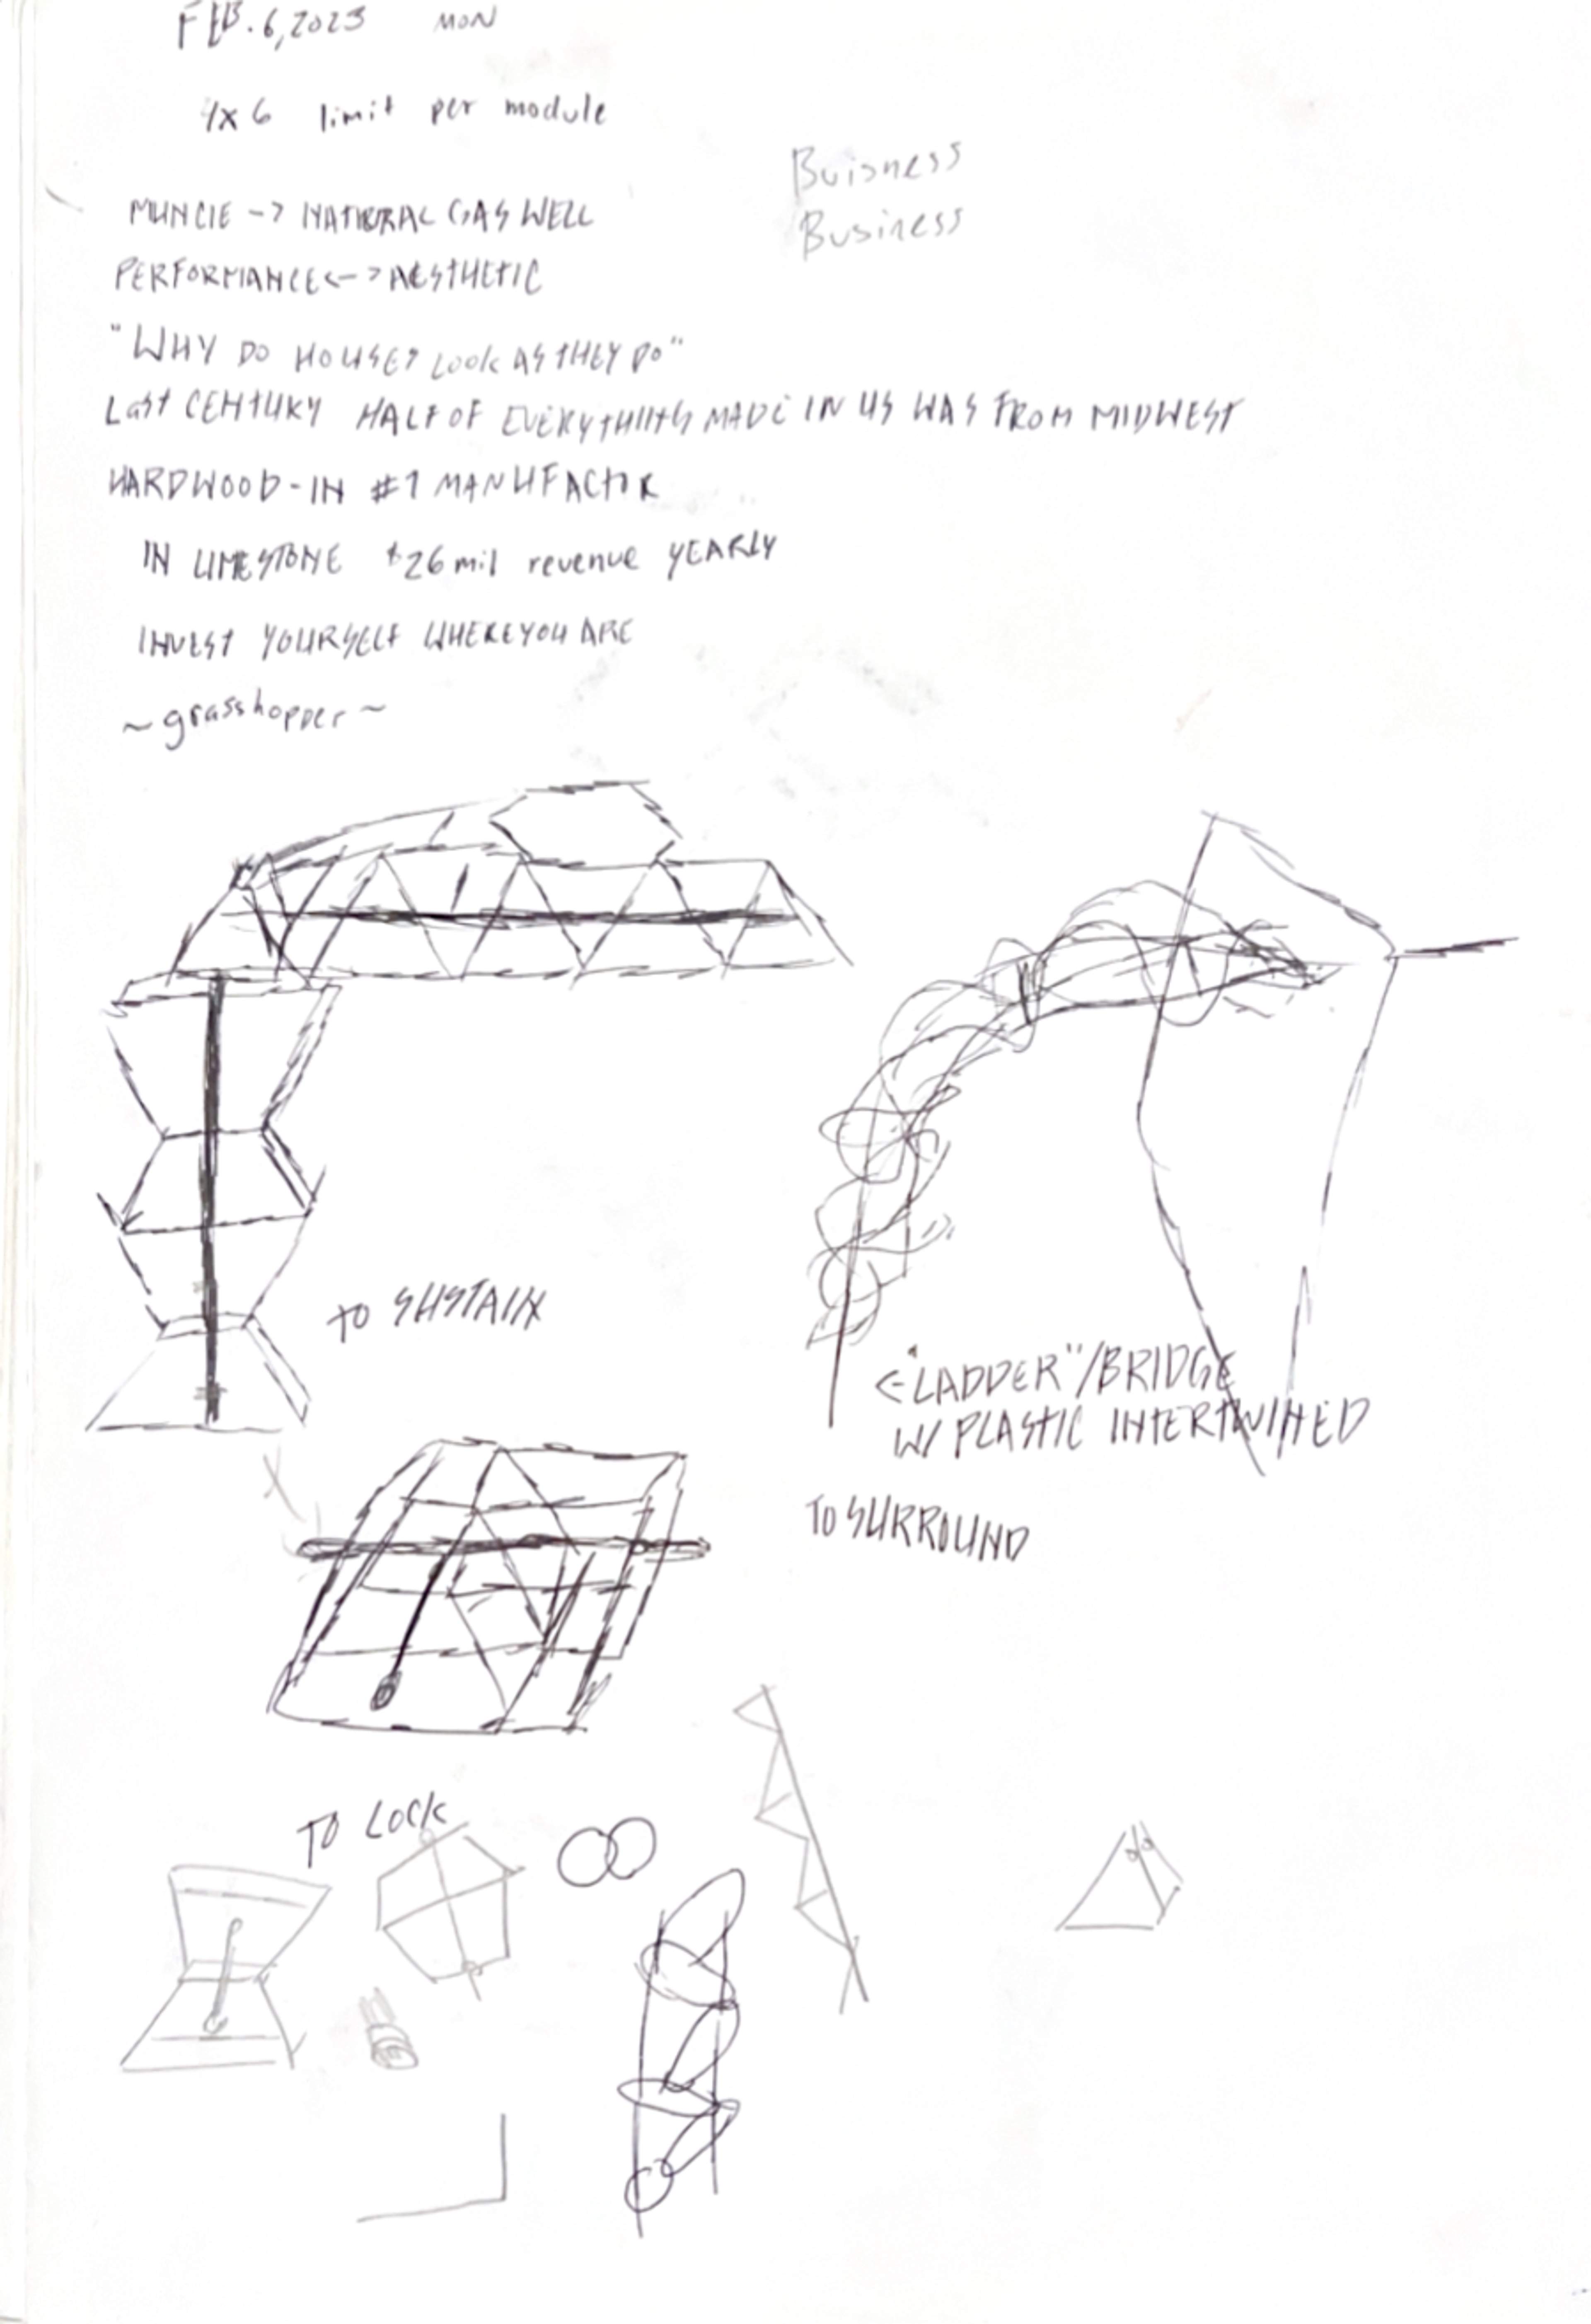 FEB. 6, 2023 MON
4x6 limit per module
Buisness
Business
MUNCIE -> NATURAL GAS WELL
PERFORMANCE <-> AESTHETIC
"WHY DO HOUSES LOOK AS THEY DO"
LAST CENTURY HALF OF EVERYTHING MADE IN US WAS FROM MIDWEST
HARDWOOD - IN #1 MANUFACTOR
IN LIMESTONE $26 mil revenue YEARLY
INVEST YOURSELF WHERE YOU ARE
~grasshopper~
TO SUSTAIN
<-"LADDER"/BRIDGE
W/ PLASTIC INTERTWINED
TO SURROUND
TO LOCK